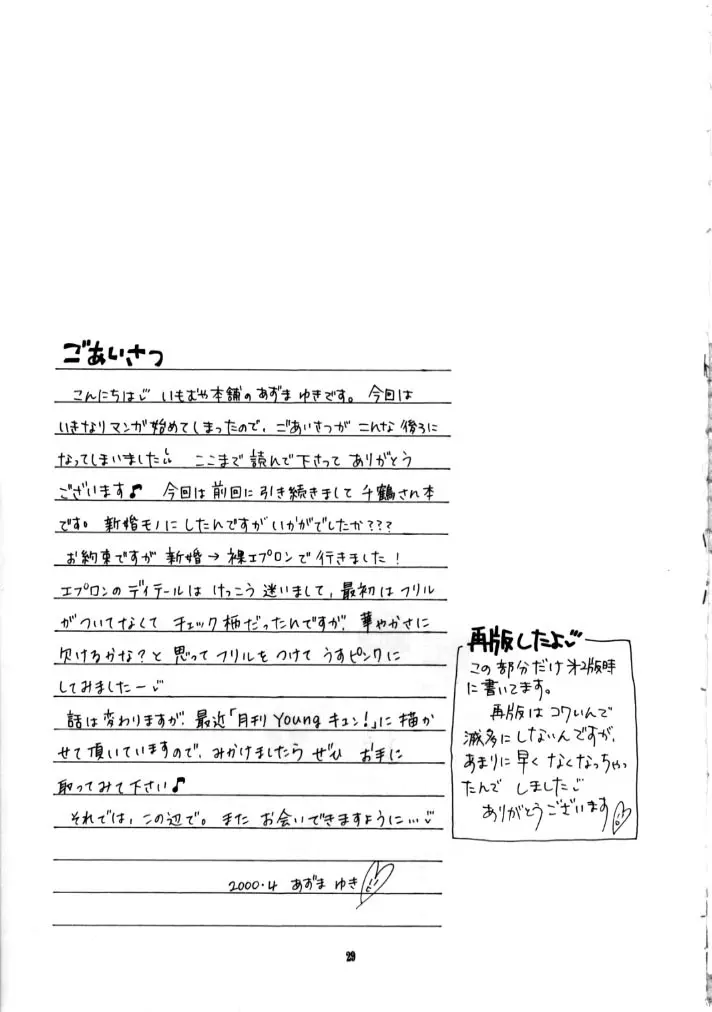 ごあいさつ
こんにちは♡ いもむや本舗のあずま ゆきです。今回は
いきなりマンガ始めてしまったので、ごあいさつが こんな後ろに
なってしまいました ここまで 読んで下さって ありがとう
ございます♪ 今回は前回に引き続きまして千鶴さん本
です。新婚モノにしたんですがいかがでしたか???
お約束ですが 新婚→裸エプロンで行きました!
エプロンの ディテールは けっこう 迷いまして、最初はフリル
がついてなくて チェック柄だったんですが、華やかさに
欠けるかな?と 思ってフリルをつけて うすピンクに
してみましたー♡
話は変わりますが、最近「月刊 Young キュン!」に 描か
せて頂いていますので、みかけましたら ぜひ お手に
取ってみて下さい♪
それでは、この辺で。また お会いできますように…♡
2000.4 あずま ゆき
再版したよ♡
この部分だけ第2版時
に書いてます。
再版は コワいんで
滅多にしないんですが、
あまりに早く なくなっちゃっ
たんで しました♡
ありがとうございます
29